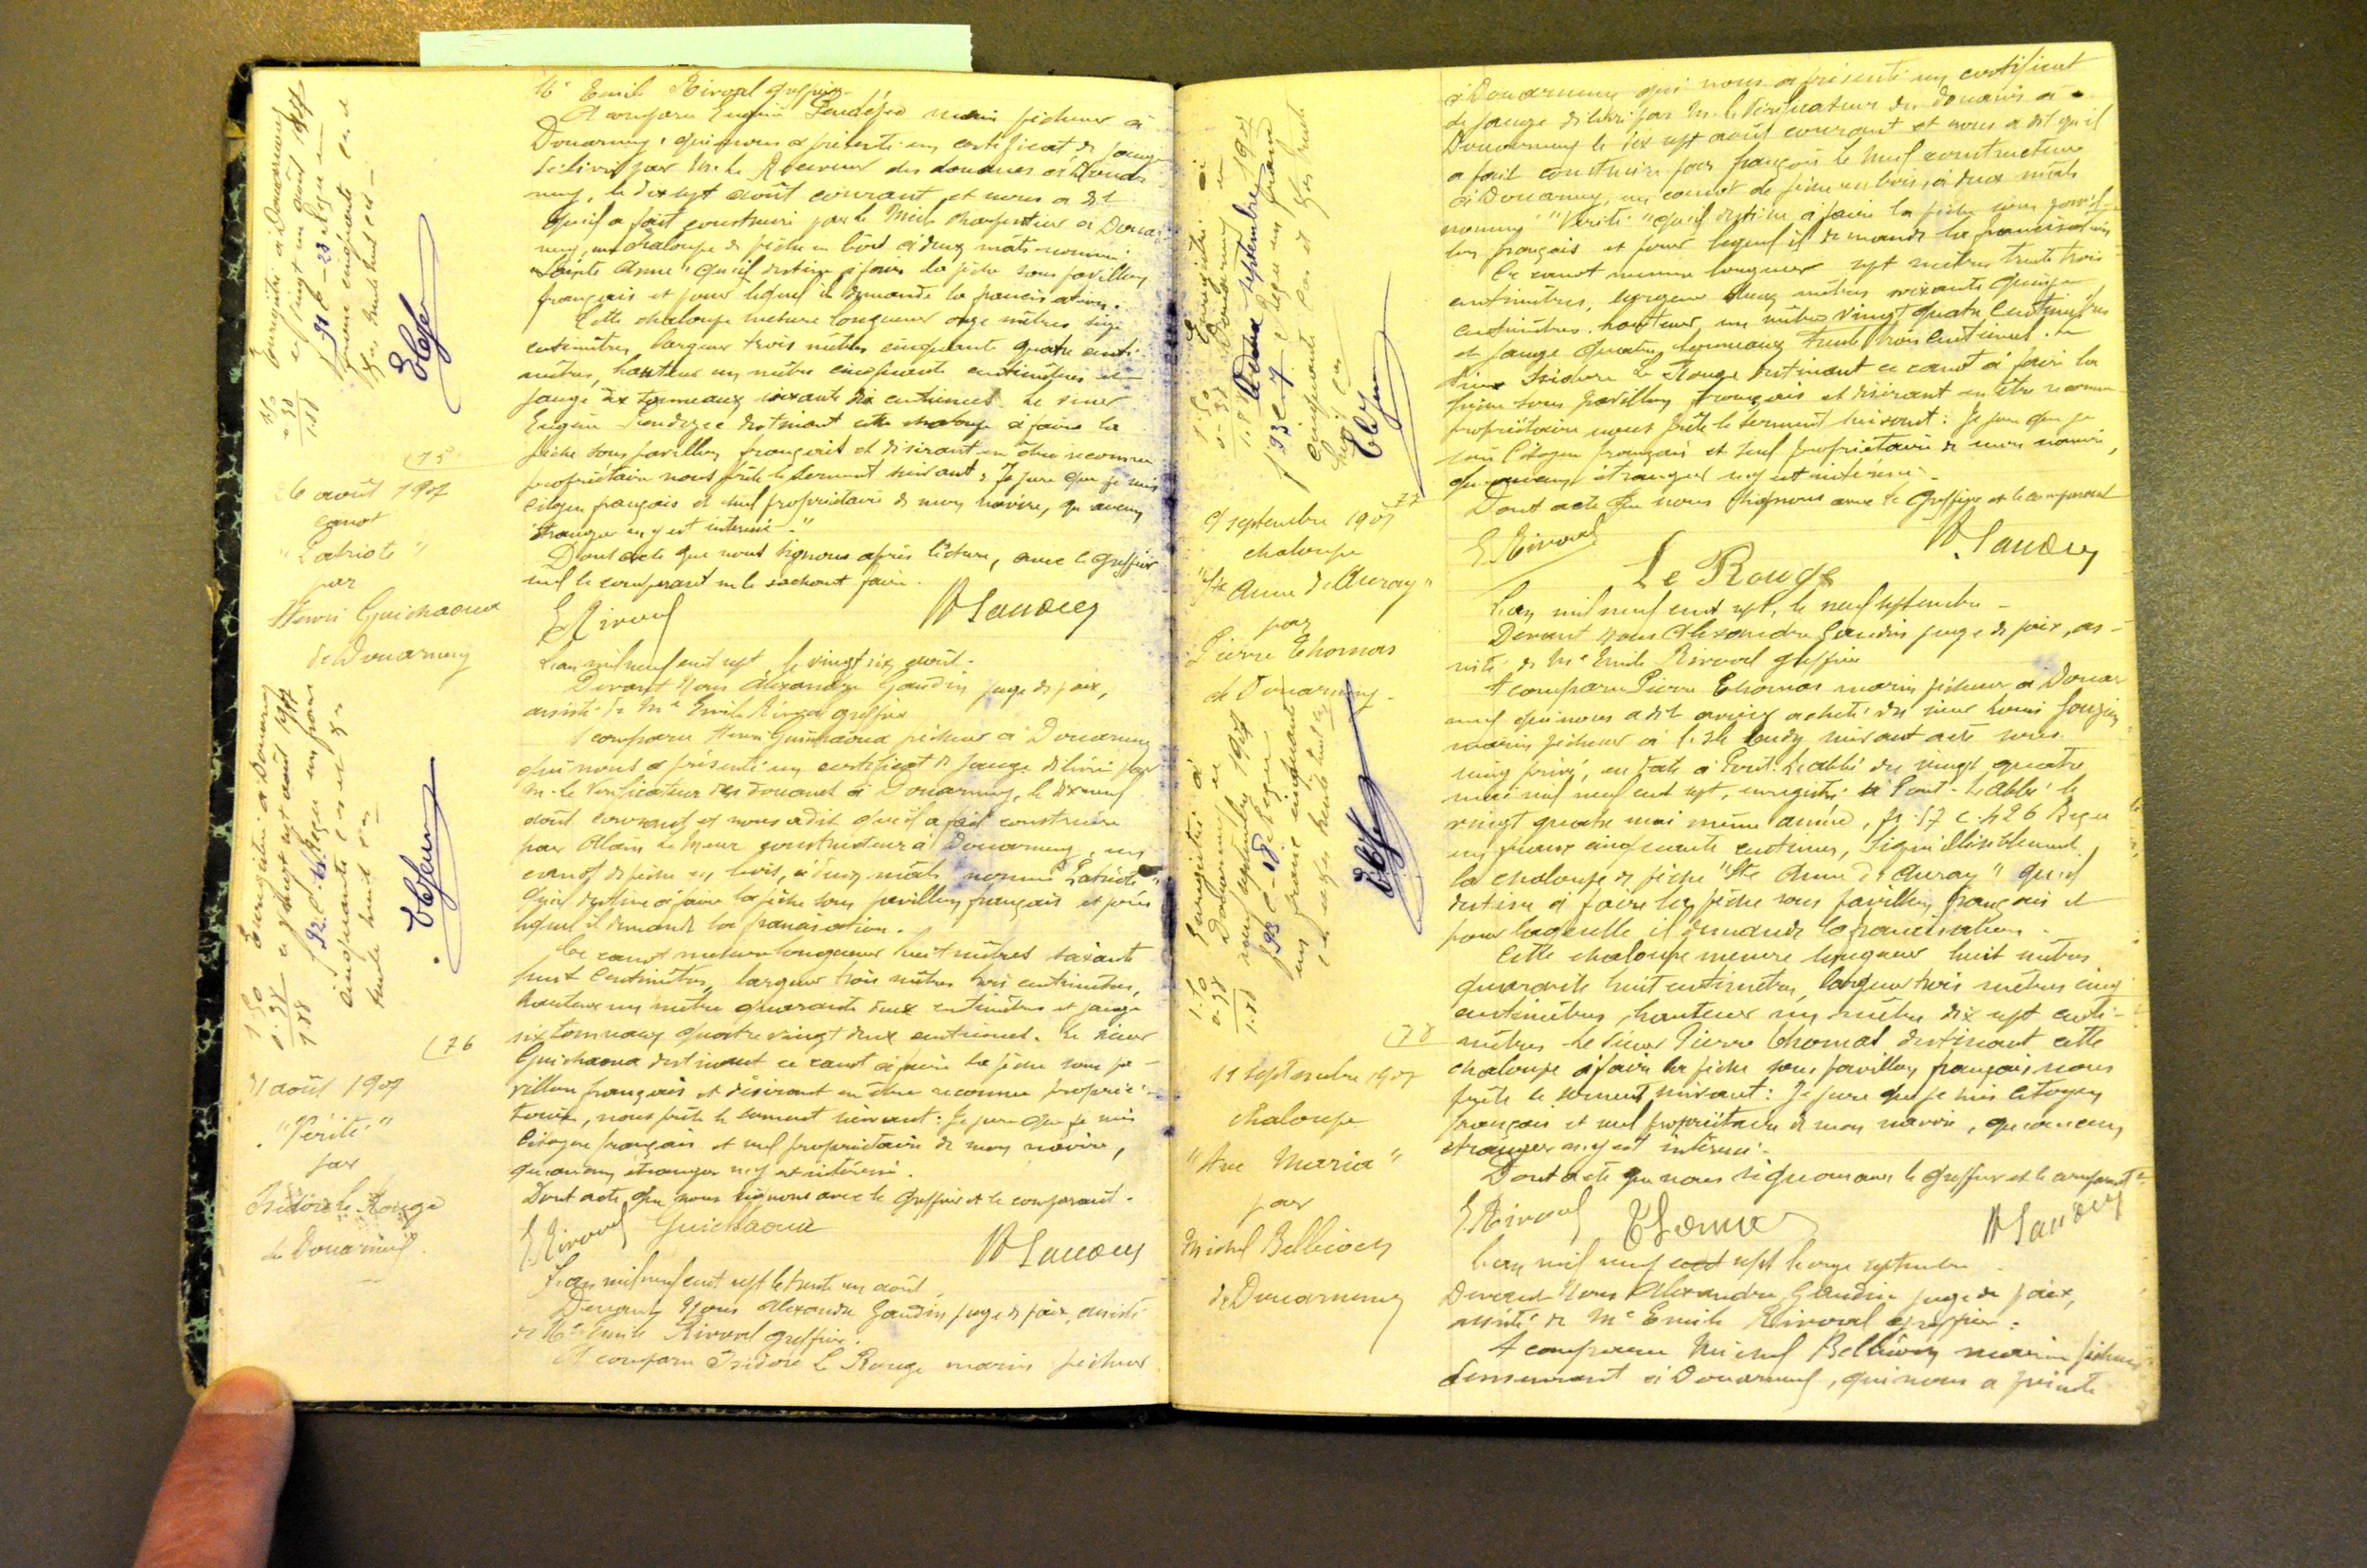 Me Emile Rivoal greffier
A comparu Eugène marin pêcheur à
Douarnenez, qui nous a présenté un certificat de jauge
délivré par Mr le Receveur des douanes à Douarne
nez, le dix sept août courant et nous a dit
qu'il a fait construire par le charpentier à Douar
nez, une chaloupe de pêche en bois à deux mats nommée
"Sainte Anne" qu'il destine à faire la pêche sous pavillon
français et pour lequel il demande la francisation.
Cette chaloupe mesure longueur onze mètres
centimètres, largeur trois mètres cinquante quatre centi
mètres, hauteur un mètre cinquante centimètres et
jauge dix tonneaux soixante dix centièmes. Le sieur
Eugène destinant cette chaloupe à faire la
pêche sous pavillon français et désirant en être reconnu
propriétaire nous prête le serment suivant : Je jure que je suis
citoyen français et seul propriétaire de mon navire, qu'aucun
étranger n'y est intéressé."
Dont acte que nous signons après lecture, avec le greffier
seul le comparant ne le sachant faire.
E Rivoal A Gaudin
L'an mil neuf cent sept, le vingt six août.
Devant Nous Alexandre Gaudin juge de paix,
assisté de Me Emile Rivoal greffier
A comparu Henri Guichaoua pêcheur à Douarnenez
qui nous a présenté un certificat de jauge délivré par
M. le Vérificateur des Douanes à Douarnenez, le dix neuf
août courant et nous a dit qu'il a fait construire
par Alain constructeur à Douarnenez, un
canot de pêche en bois, à deux mâts nommé "Patriote"
qu'il destine à faire la pêche sous pavillon français et pour
lequel il demande la francisation.
Ce canot mesure longueur huit mètres soixante
huit centimètres, largeur trois mètres trois centimètres,
hauteur un mètre quarante deux centimètres et jauge
six tonneaux quatre vingt deux centièmes. Le sieur
Guichaoua destinant ce canot à faire la pêche sous pa-
villon français et désirant en être reconnu proprié-
taire, nous prête le serment suivant : Je jure que je suis
citoyen français et seul propriétaire de mon navire,
qu'aucun étranger n'y est intéressé.
Dont acte, que nous signons avec le greffier et le comparant.
E Rivoal Guichaoua A Gaudin
L'an mil neuf cent sept le trente un août,
Devant Nous Alexandre Gaudin juge de paix, assisté
de Me Emile Rivoal greffier.
A comparu Isidore Le Rouge marin pêcheur
Enregistré à Douarnenez
le vingt un août 1907
fo 91 c - 23 Reçu un
franc cinquante cent
1.50
0.38
1.88
(75
26 août 1907
canot
"Patriote"
par
Henri Guichaoua
de Douarnenez
Enregistré à Douarnenez
le vingt sept août 1907
fo 92 Reçu un franc
cinquante
trente huit
1.50
0.38
1.88
(76
31 août 1907
"Vérité"
par
Isidore Le Rouge
de Douarnenez
à Douarnenez qui nous a présenté un certificat
de jauge délivré par Mr le Vérificateur des Douanes à
Douarnenez le dix sept août courant et nous a dit qu'il
a fait construire par françois Le Meuf constructeur
à Douarnenez, un canot de pêche en bois, à deux mâts
nommé "Vérité" qu'il destine à faire la pêche sous pavil-
lon français et pour lequel il demande la francisation
Ce canot mesure longueur sept mètres trente trois
centimètres, largeur deux mètres soixante quinze
centimètres, hauteur un mètre vingt quatre centimètres
et jauge quatre tonneaux trente trois centièmes. Le
sieur Isidore Le Rouge destinant ce canot à faire la
pêche sous pavillon français et désirant en être reconnu
propriétaire nous prête le serment suivant : Je jure que je
suis citoyen français et seul propriétaire de mon navire,
qu'aucun étranger n'y est intéressé.
Dont acte que nous signons avec le greffier et le comparant
E. Rivoal A. Gaudin
Le Rouge
L'an mil neuf cent sept, le neuf septembre
Devant Nous Alexandre Gaudin juge de paix, as-
sisté de Me Emile Rivoal greffier
A comparu Pierre Thomas marin pêcheur à Douar
nenez qui nous a dit avoir acheté du sieur
marin pêcheur à l'Ile Tudy suivant acte sous
seing privé, en date à Pont-Labbé du vingt quatre
mai mil neuf cent sept, enregistré à Pont-Labbé le
vingt quatre mai même année, fo 57 c 426 Reçu
un franc cinquante centimes, signé illisiblement
la chaloupe de pêche "Ste Anne d'Auray" qu'il
destine à faire la pêche sous pavillon français et
pour laquelle il demande la francisation.
Cette chaloupe mesure longueur huit mètres
quarante huit centimètres, largeur trois mètres cinq
centimètres, hauteur un mètre dix sept centi-
mètres. Le sieur Pierre Thomas destinant cette
chaloupe à faire la pêche sous pavillon français nous
prête le serment suivant : Je jure que je suis citoyen
français et seul propriétaire de mon navire, qu'aucun
étranger n'y est intéressé.
Dont acte que nous signons avec le greffier et le comparant
E Rivoal Thomas A Gaudin
L'an mil neuf cent sept le onze septembre
Devant Nous Alexandre Gaudin juge de paix,
assisté de Me Emile Rivoal greffier.
A comparu Michel Bellivoen marin pêcheur
demeurant à Douarnenez, qui nous a présenté
Enregistré à
Douarnenez le
deux septembre 1907
fo 93 c 7 Reçu un franc
cinquante
1.50
0.38
1.88
77
9 septembre 1907
chaloupe
"Ste Anne d'Auray"
par
Pierre Thomas
de Douarnenez
Enregistré à
Douarnenez le
septembre 1907
fo 93 c - 18 Reçu
un franc cinquante
1.50
0.38
1.88
(78
11 septembre 1907
chaloupe
"Ave Maria"
par
Michel Bellivoen
de Douarnenez